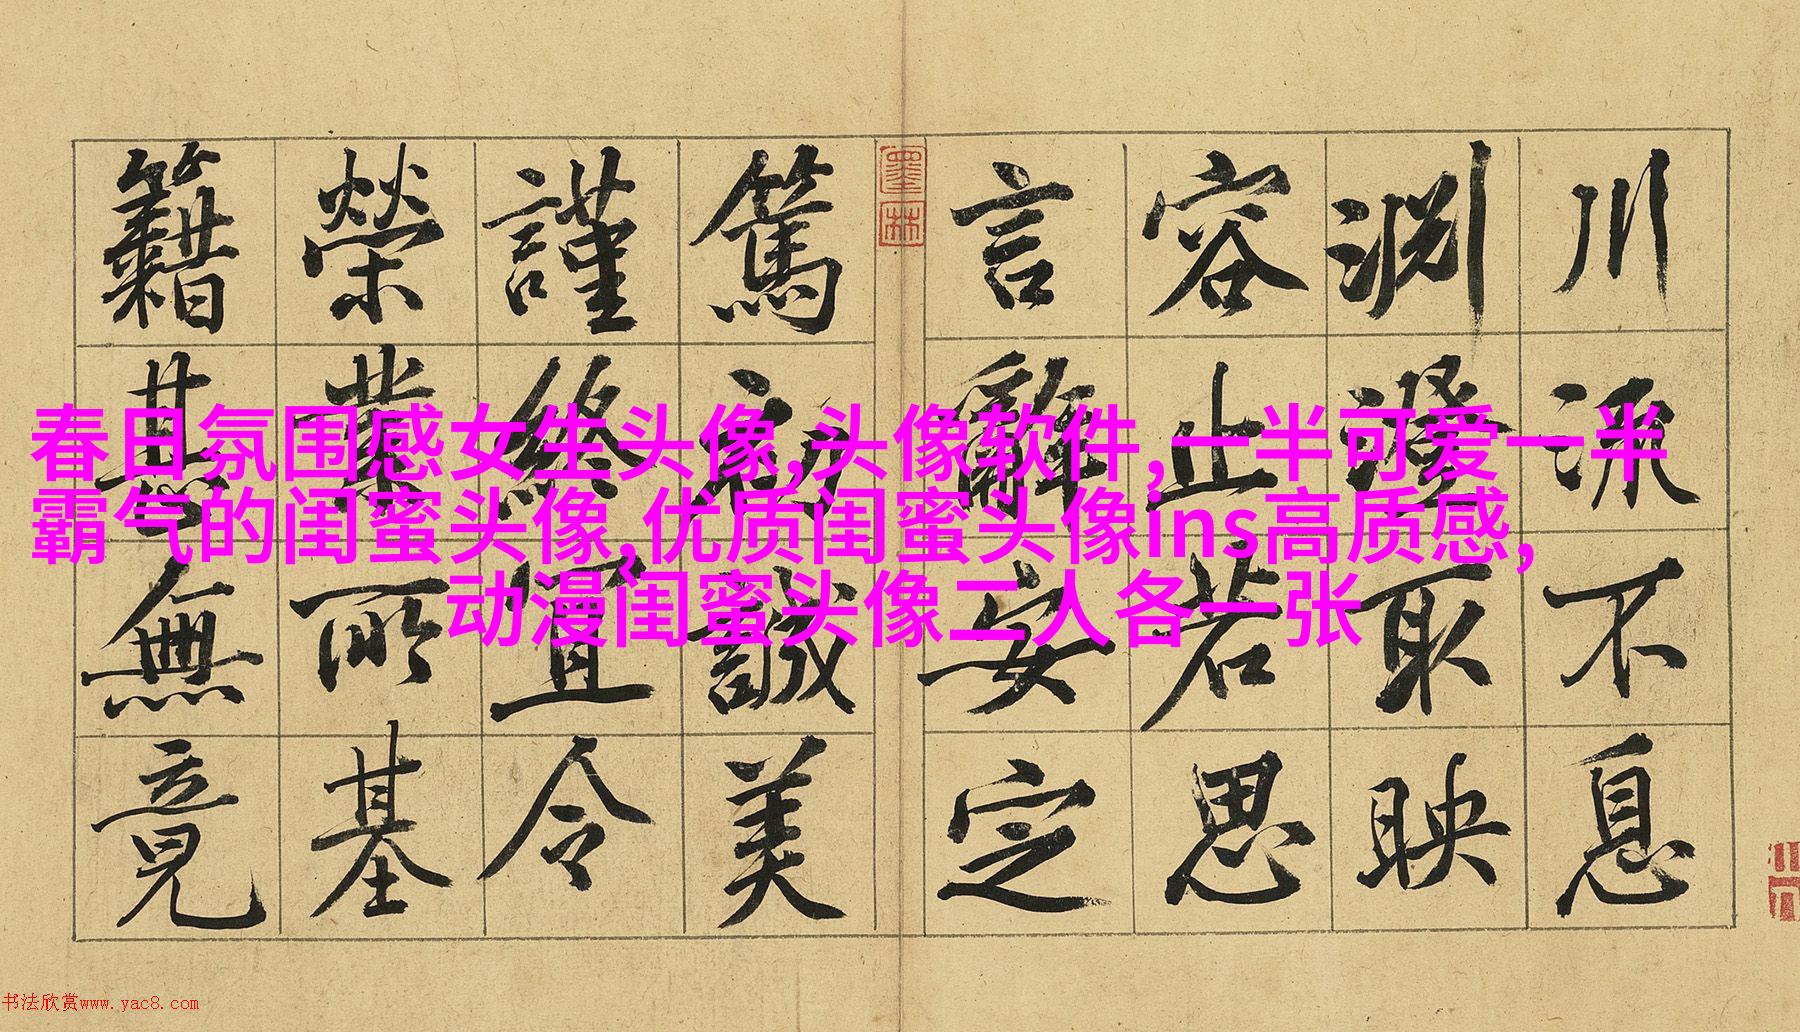 川流不息
淵澄取映
容止若思
言辭安定
墨林
篤初誠美
謹終宜令
榮業所基
籍甚無竟
春日氛围感女生头像,头像软件,一半可爱一半
霸气的闺蜜头像,优质闺蜜头像ins高质感,
动漫闺蜜头像二人各一张
书法欣赏www.yac8.com